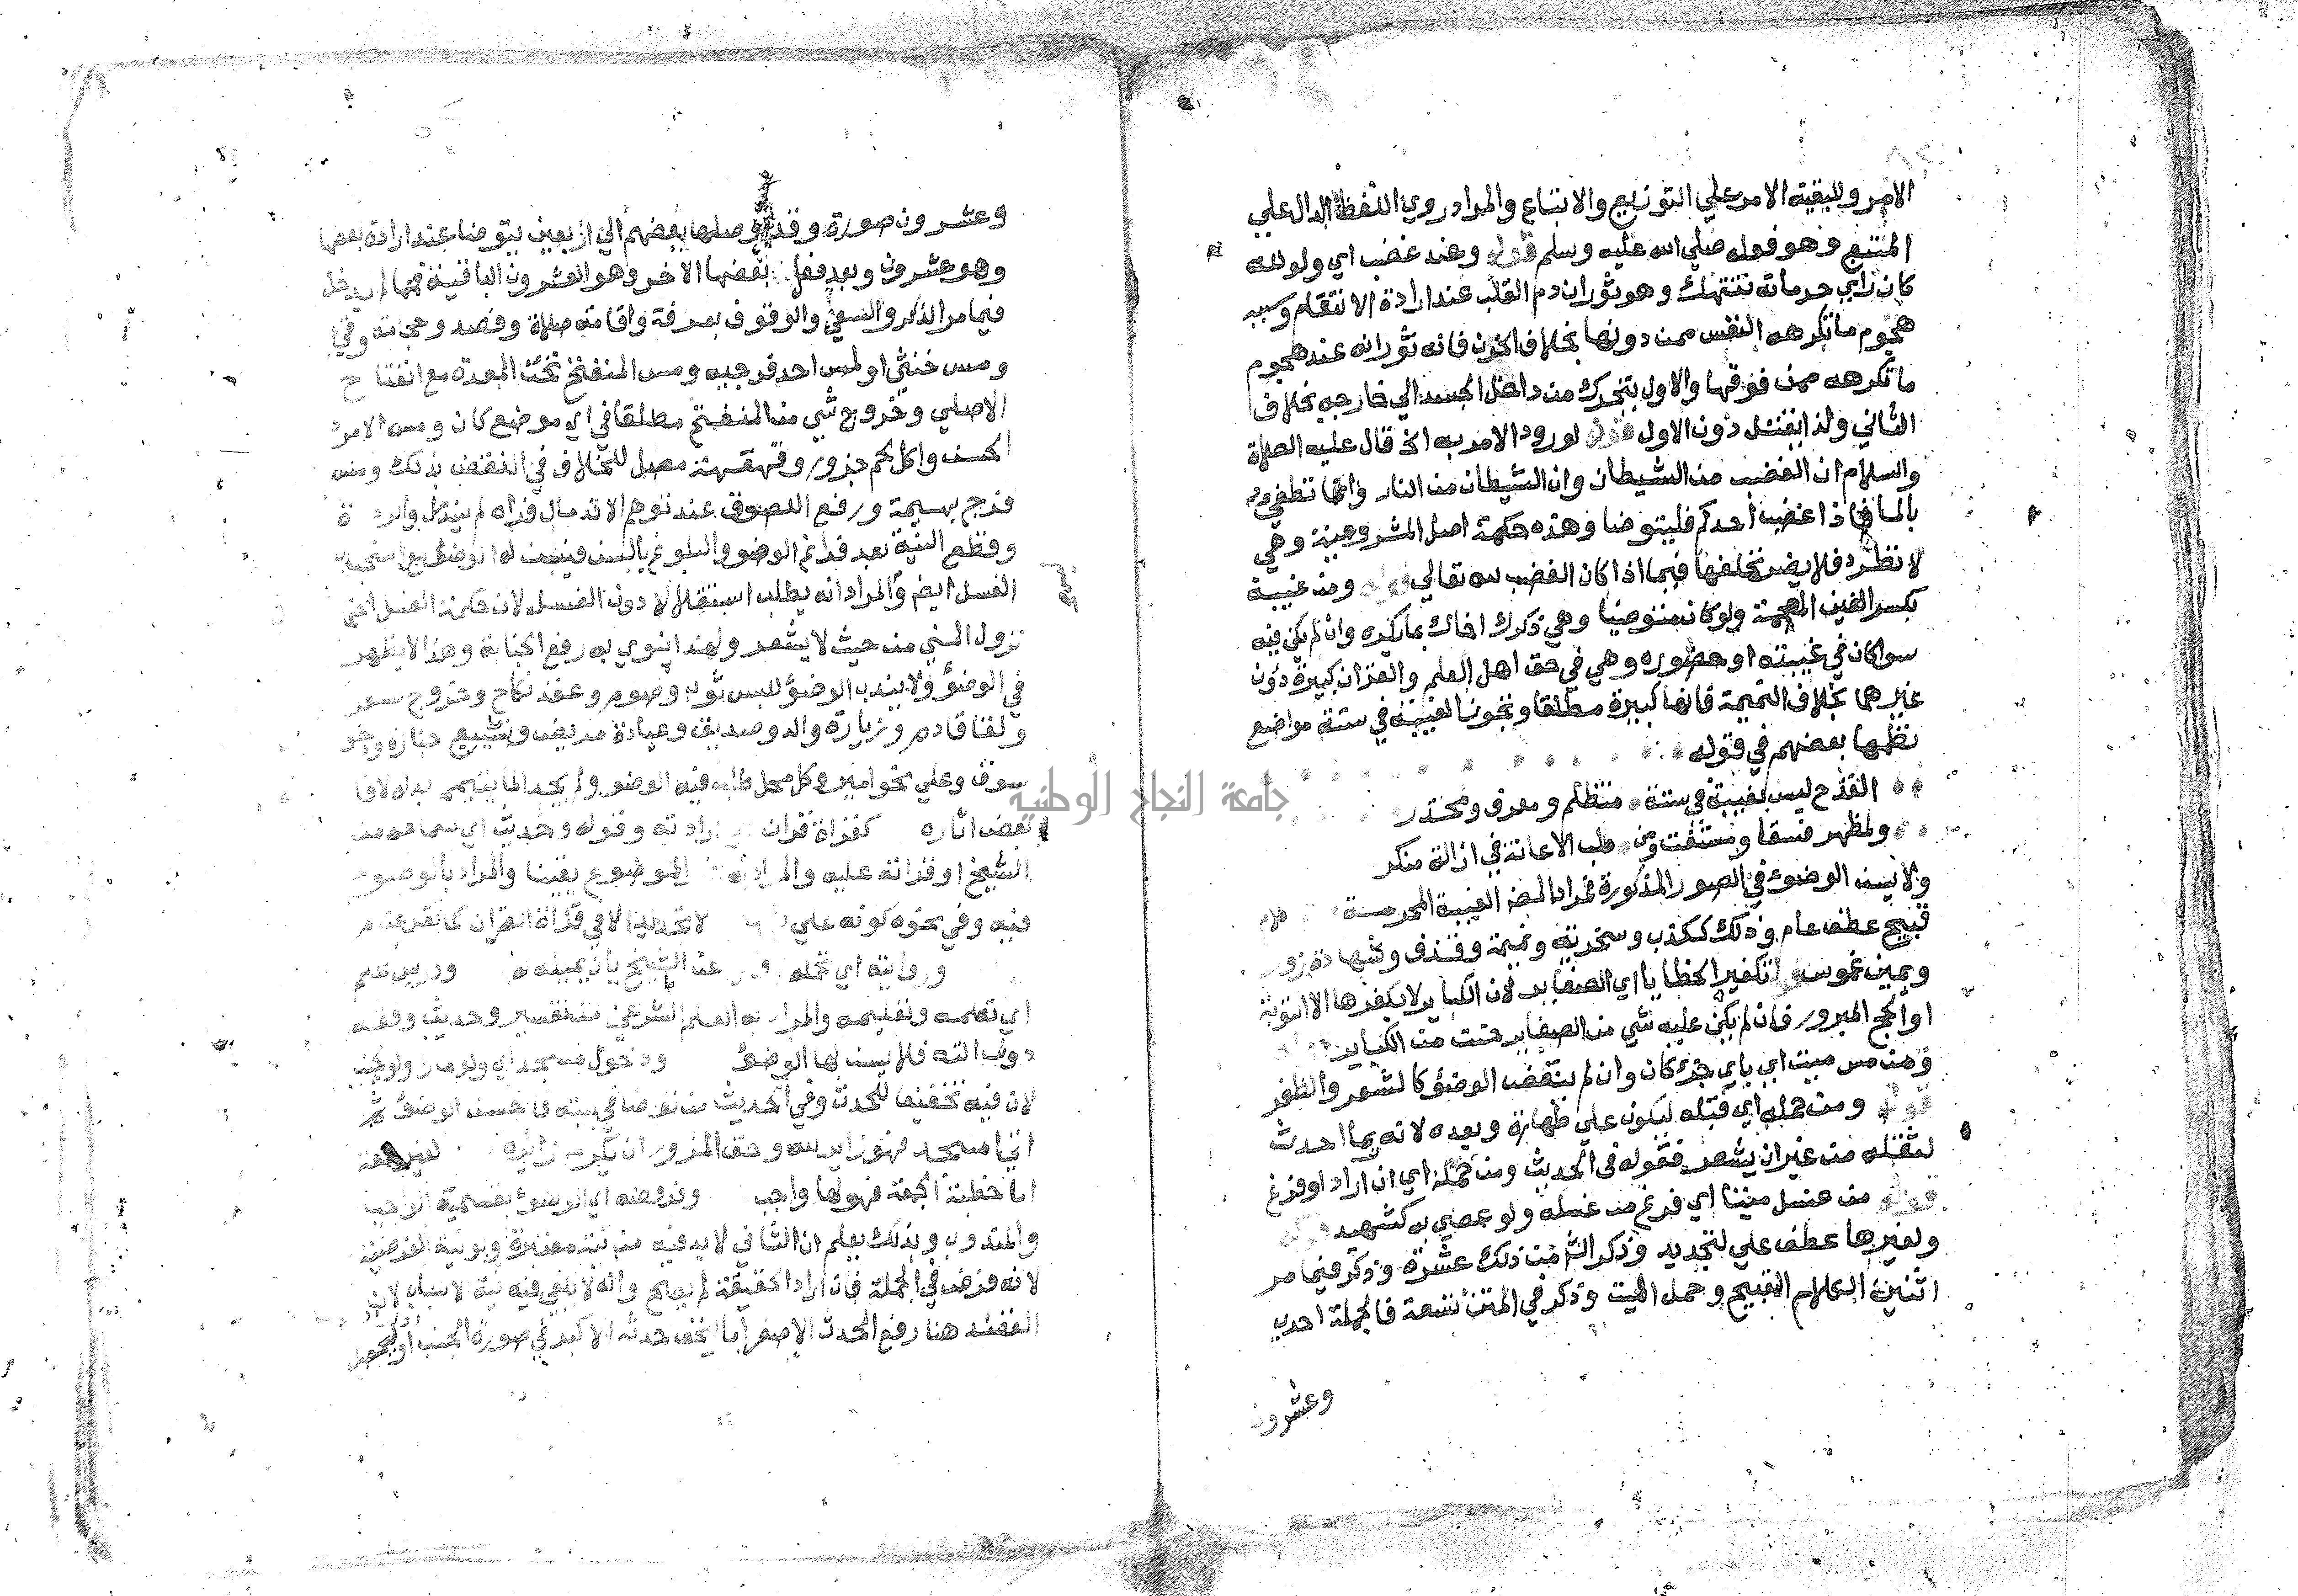 الامر ولبقيته الامر علي التوزيع والاتباع والمراد روي اللفظ الدال علي
المتبع وهو قوله صلي الله عليه وسلم قوله وعند غضب اي ولو لله
كان راي حرماته تنتهك وهو ثوران دم القلب عند ارادة الانتقام وسببه
هجوم ما تكرهه النفس ممن دونها بخلاف الحزن فانه ثورانه عند هجوم
ما تكرهه ممن فوقها والاول يتحرك من داخل الجسد الي خارجه بخلاف
الثاني ولذا يقتل دون الاول قوله لورود الامر به اذ قال عليه الصلاة
والسلام ان الغضب من الشيطان وان الشيطان من النار وانما تطفي
بالما فاذا غضب احدكم فليتوضا وهذه حكمة اصل المشروعية وهي
لا تطرد فلا يضر تخلفها فيما اذا كان الغضب لله تعالي قوله ومن غيبة
بكسر الغين المعجمة ولو كان متوضيا وهي ذكرك اخاك بما يكره وان لم يكن فيه
سوا كان في غيبته او حضوره وهي في حق اهل العلم والقران كبيرة دون
غيرهما بخلاف النميمة فانها كبيرة مطلقا وتجوز الغيبة في ستة مواضع
نظمها بعضهم في قوله
القدح ليس بغيبة في ستة متظلم ومعرف ومحذر
ولمظهر فسقا ومستفت ومن طلب الاعانة في ازالة منكر
ولا يسن الوضوء في الصور المذكورة فمراد المص الغيبة المحرمة
قبيح عطف عام وذلك ككذب وسخرية ونميمة وقذف وشهادة زور
ويمين غموس لتكفير الخطايا اي الصغاير لان الكباير لا يكفرها الا التوبة
او الحج المبرور فان لم يكن عليه شي من الصغاير حتت من الكباير
ومن مس ميت اي باي جزء كان وان لم ينقض الوضؤ كالشعر والظفر
قوله ومن حمله اي قبله ليكون علي طهارة وبعده لانه ربما احدث
لثقله من غير ان يشعر فقوله في الحديث ومن حمله اي ان اراد او فرغ
قوله من غسل ميتا اي فرغ من غسله ولو عصي به كشهيد
ولغيرها عطف علي لتجديد وذكر الش من ذلك عشرة وذكر فيما مر
اثنين الكلام القبيح وحمل الميت وذكر في المتن تسعة فالجملة احدي
وعشرون
وعشرون صورة وقد وصلها بعضهم الي اربعين يتوضا عند ارادة بعضها
وهو عشرون وبعد فعل بعضها الاخر وهو العشرون الباقية فمما لم يدخل
فيما مر الذكر والسعي والوقوف بعرفة واقامة صلاة وفصد وحجامة وقي
ومس خنثي او لمس احد فرجيه ومس المنفتح تحت المعدة مع انفتاح
الاصلي وخروج شي من المنفتح مطلقا في اي موضع كان ومس الامرد
الحسن واكل لحم جزور وقهقهة مصل للخلاف في النقض بذلك ومس
فرج بهيمة ورفع اللصوق عند توهم الاندمال فراه لم يندمل
وقطع النية بعد فراغ الوضو والبلوغ بالسن
الغسل ايضا والمراد انه يطلب استقلالا دون الغسل لان حكمة الغسل
نزول المني من حيث لا يشعر ولهذا ينوي به رفع الجنابة وهذا لا يظهر
في الوضؤ ولا يندب الوضؤ للبس ثوب وصوم وعقد نكاح وخروج سفر
ولقا قادم وزيارة والد وصديق وعيادة مريض وتشييع جنازة
سوق وعلي نحو امير وكل محل طلب فيه الوضو ولم يجد الما يتيمم بدله
بعض اثاره كقراة قران ارادته وقوله وحديث اي سماعه من
الشيخ او قراته عليه والمراد الموضوع يقينا والمراد بالوضوء
فيه وفي نحوه كونه علي لا تجديد الا في قراة القران كما تقدم
وروايته اي نحمله عن الشيخ بان يمليه ودرس علم
اي تعلمه وتعليمه والمراد به العلم الشرعي من تفسير وحديث وفقه
دون التة فلا يسن لها الوضؤ ودخول مسجد اي ولو مارا ولو جنب
لان فيه تخفيفا للحدث وفي الحديث من توضا في بيته فاحسن الوضؤ ثم
اتي المسجد فهو زاير لله وحق المزور ان يكرم زايره لغير جمعة
اما خطبة الجمعة فهو لها واجب وفروضه اي الوضوء بقسميه الواجب
والمندوب وبذلك يعلم ان الثاني لا بد فيه من نية معتبرة وبونية الفرضية
لانه فرض في الجملة فان اراد الحقيقة لم يصح وانه لا يلغي فيه نية الاسباب لان
القصد هنا رفع الحدث الاصغر اما لتخفف حدثه الاكبر في صورة الجنب او ليحصل
جامعة النجاح الوطنية